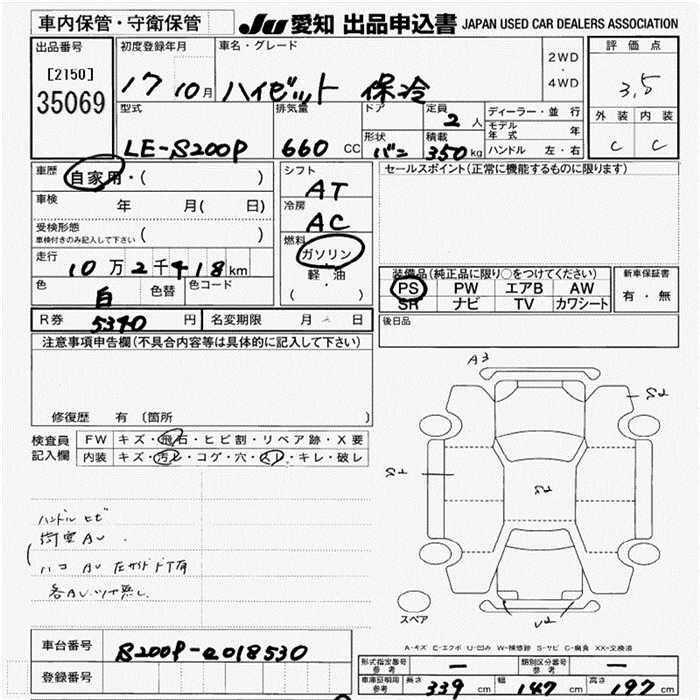 車内保管・守衛保管
JU 愛知 出品申込書 JAPAN USED CAR DEALERS ASSOCIATION
出品番号
[2150]
35069
初度登録年月
17 10月
車名・グレード
ハイゼット 保冷
2WD
・
4WD
評価点
3.5
外装 内装
C C
型式
LE-S200P
排気量
660 CC
ドア
形状
バン
定員
2 人
積載
350 kg
ディーラー・並行
モデル年式 年
ハンドル 左・右
車歴
自家用・( )
車検
年 月( 日)
受検形態
車検付きのみ記入して下さい ( )
走行
10万2千418km
色
白
色替
色コード
シフト
AT
冷房
AC
燃料
ガソリン
軽・油
( )
セールスポイント(正常に機能するものに限ります)
装備品(純正品に限り○をつけてください)
PS PW エアB AW
SR ナビ TV カワシート
新車保証書
有・無
後日品
R券 5340 円 名変期限 月 日
注意事項申告欄(不具合内容等は具体的に記入して下さい)
修復歴 有 〔箇所
検査員
記入欄
FW キズ・飛石・ヒビ割・リペア跡・X要
内装 キズ・汚レ・コゲ・穴・スレ・キレ・破レ
ハンドルヒビ
A3
S2
S2
U2
スペア
A-キズ E-エクボ U-凹み W-補修跡 S-サビ C-腐食 XX-交換済
車台番号
S200P-2018530
登録番号
形式指定番号
参考
—
類別区分番号
参考
—
車庫証明用
参考
長さ 339 cm 幅 147 cm 高さ 197 cm